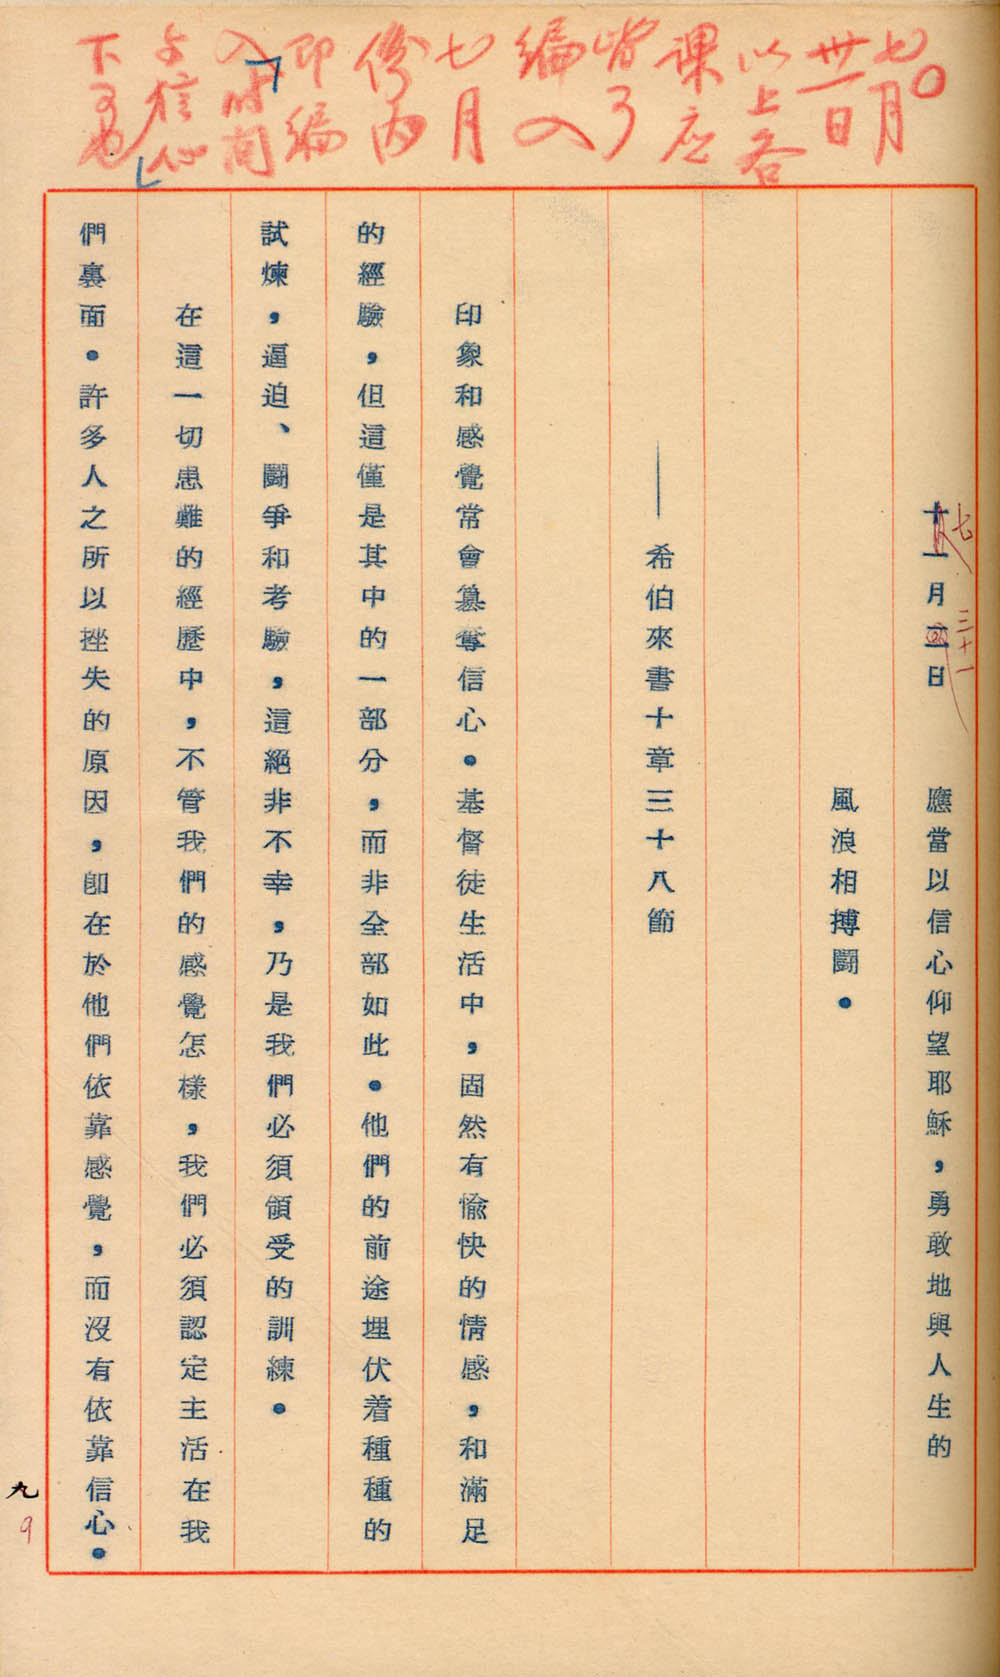 七月
卅一日
以上各
課应
皆了
編入
七月
份内
即編
入「时间
与信心」
下
七
三十一
十一月二日
應當以信心仰望耶穌，勇敢地與人生的
風浪相搏鬪。
——希伯來書十章三十八節
印象和感覺常會篡奪信心。基督徒生活中，固然有愉快的情感，和滿足
的經驗，但這僅是其中的一部分，而非全部如此。他們的前途埋伏着種種的
試煉，逼迫、鬪爭和考驗，這絕非不幸，乃是我們必須領受的訓練。
在這一切患難的經歷中，不管我們的感覺怎樣，我們必須認定主活在我
們裏面。許多人之所以挫失的原因，卽在於他們依靠感覺，而沒有依靠信心。
九
9